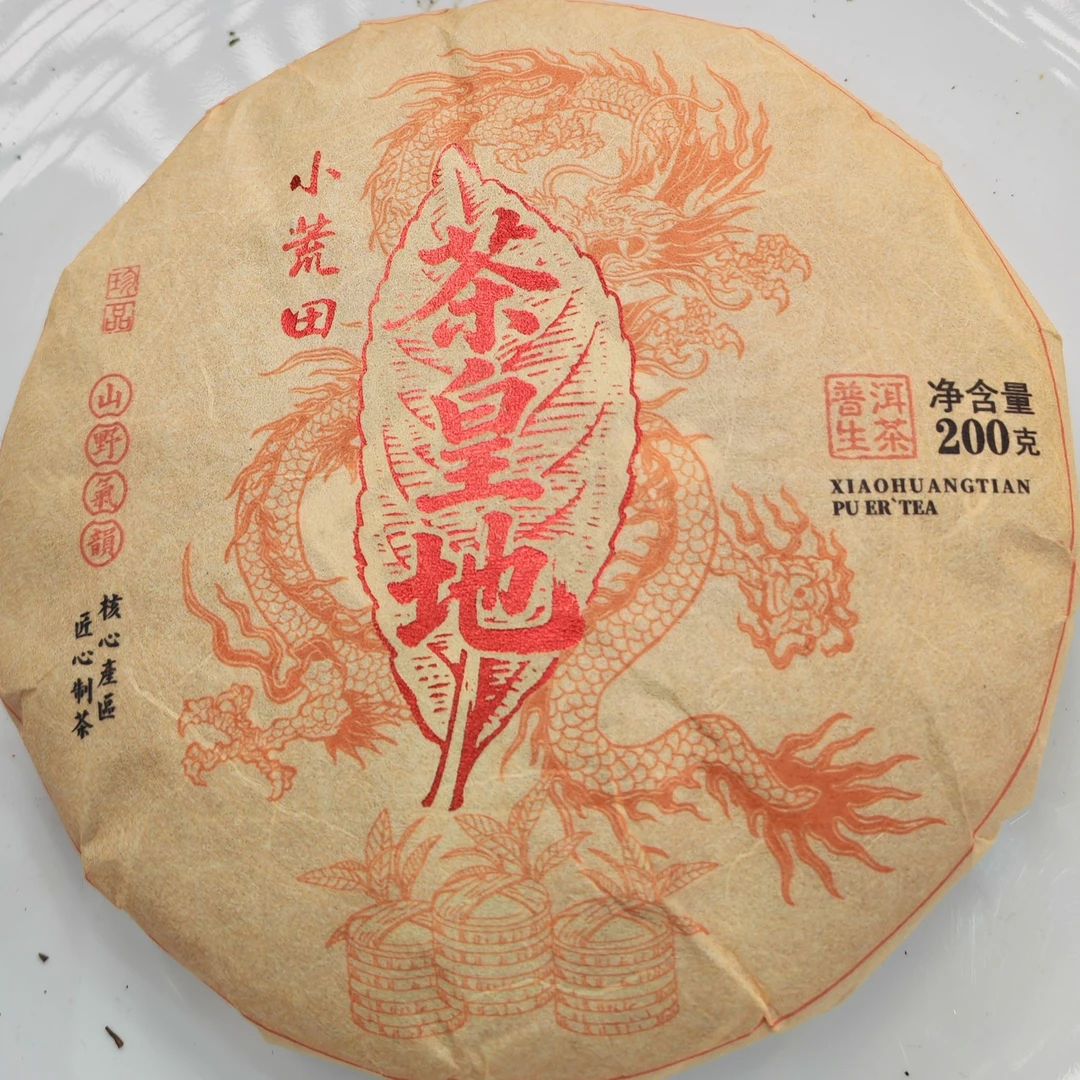 小荒田
茶皇地
珍品
山野氣韻
核心產區
匠心制茶
普洱
生茶
净含量
200克
XIAOHUANGTIAN
PU ER`TEA